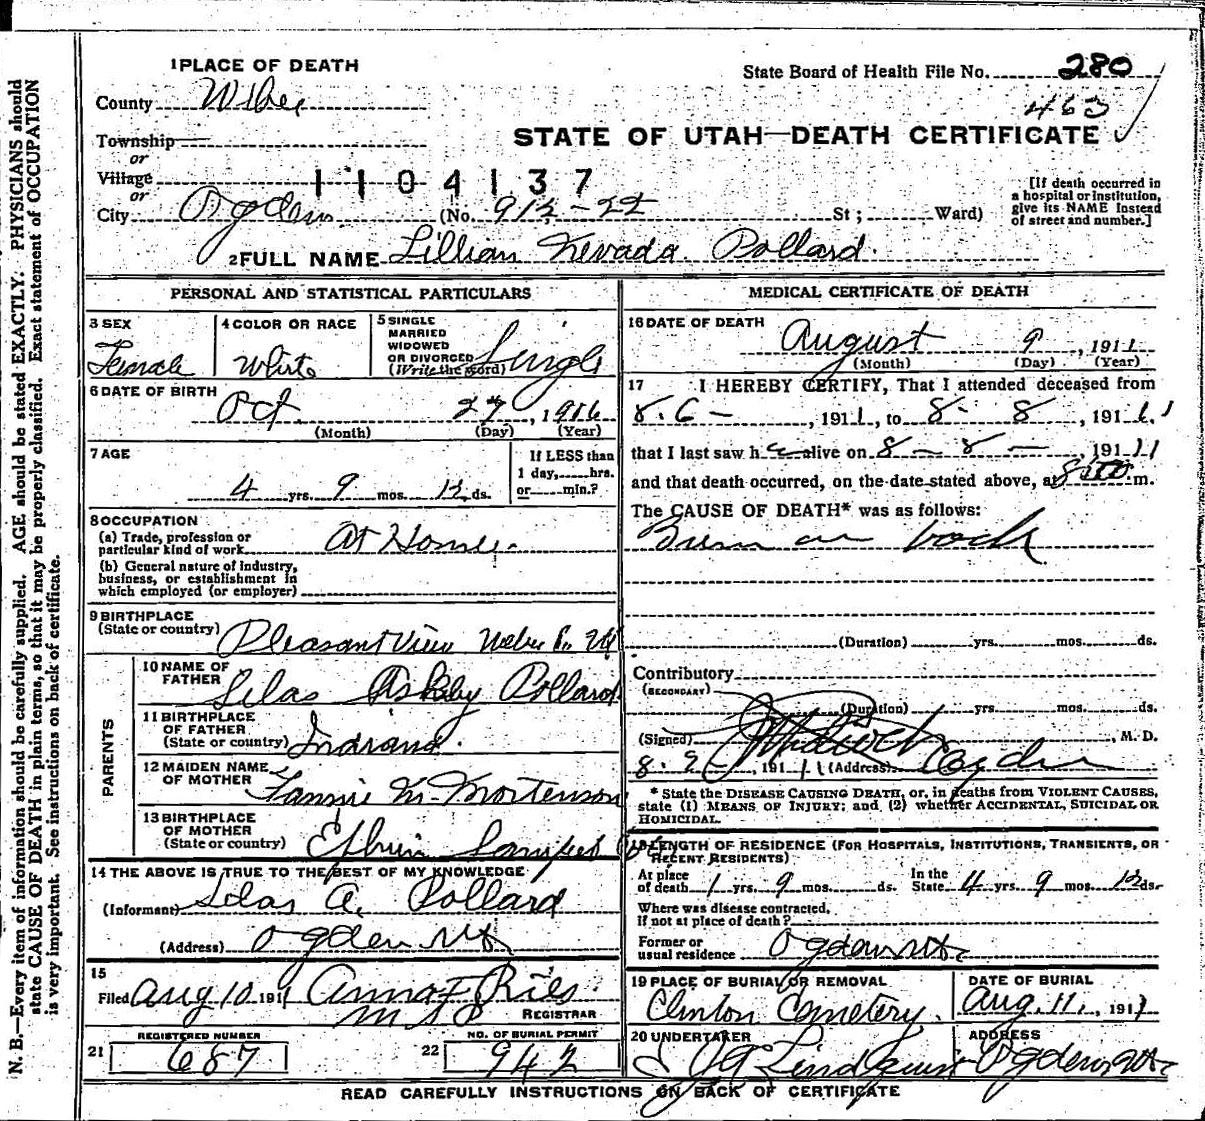 N. B.—Every item of information should be carefully supplied. AGE should be stated EXACTLY. PHYSICIANS should
state CAUSE OF DEATH in plain terms, so that it may be properly classified. Exact statement of OCCUPATION
is very important. See instructions on back of certificate.
1 PLACE OF DEATH
State Board of Health File No. 280
463
County Weber
STATE OF UTAH—DEATH CERTIFICATE
Township
or
Village
1104137
or
City Ogden (No. 913-22 St; Ward)
[If death occurred in
a hospital or institution,
give its NAME instead
of street and number.]
2 FULL NAME Lillian Nevada Pollard.
PERSONAL AND STATISTICAL PARTICULARS
3 SEX
Female
4 COLOR OR RACE
White
5 SINGLE
MARRIED
WIDOWED
OR DIVORCED
(Write the word)
Single
6 DATE OF BIRTH
Oct. 27, 1906
(Month) (Day) (Year)
7 AGE
4 yrs. 9 mos. 13 ds.
If LESS than
1 day, hrs.
or min.?
8 OCCUPATION
(a) Trade, profession or
particular kind of work At Home.
(b) General nature of industry,
business, or establishment in
which employed (or employer)
9 BIRTHPLACE
(State or country) Pleasant View Weber Co. Ut
PARENTS
10 NAME OF
FATHER
Silas Ashby Pollard
11 BIRTHPLACE
OF FATHER
(State or country) Indiana.
12 MAIDEN NAME
OF MOTHER
Fannie M. Mortenson
13 BIRTHPLACE
OF MOTHER
(State or country) Ephrim Sanpete Co
14 THE ABOVE IS TRUE TO THE BEST OF MY KNOWLEDGE
(Informant) Silas A. Pollard
(Address) Ogden Ut
15
Filed Aug 10 1911 Anna F Ries
REGISTRAR
REGISTERED NUMBER
21 687
NO. OF BURIAL PERMIT
22 942
MEDICAL CERTIFICATE OF DEATH
16 DATE OF DEATH
August 9, 1911
(Month) (Day) (Year)
17 I HEREBY CERTIFY, That I attended deceased from
8-6-, 1911, to 8-8, 1911,
that I last saw her alive on 8-8-, 1911
and that death occurred, on the date stated above, at 8 m.
The CAUSE OF DEATH* was as follows:
Burn on
(Duration) yrs. mos. ds.
Contributory
(SECONDARY)
(Duration) yrs. mos. ds.
(Signed) , M. D.
8-9-, 1911 (Address) Ogden
* State the DISEASE CAUSING DEATH, or, in deaths from VIOLENT CAUSES,
state (1) MEANS OF INJURY; and (2) whether ACCIDENTAL, SUICIDAL OR
HOMICIDAL.
18 LENGTH OF RESIDENCE (FOR HOSPITALS, INSTITUTIONS, TRANSIENTS, OR
RECENT RESIDENTS)
At place
of death 1 yrs. 9 mos. ds.
In the
State 4 yrs. 9 mos. 13 ds.
Where was disease contracted,
if not at place of death?
Former or
usual residence Ogden Ut
19 PLACE OF BURIAL OR REMOVAL
Clinton Cemetery.
DATE OF BURIAL
Aug. 11, 1911
20 UNDERTAKER
Lindquist
ADDRESS
Ogden Ut
READ CAREFULLY INSTRUCTIONS ON BACK OF CERTIFICATE